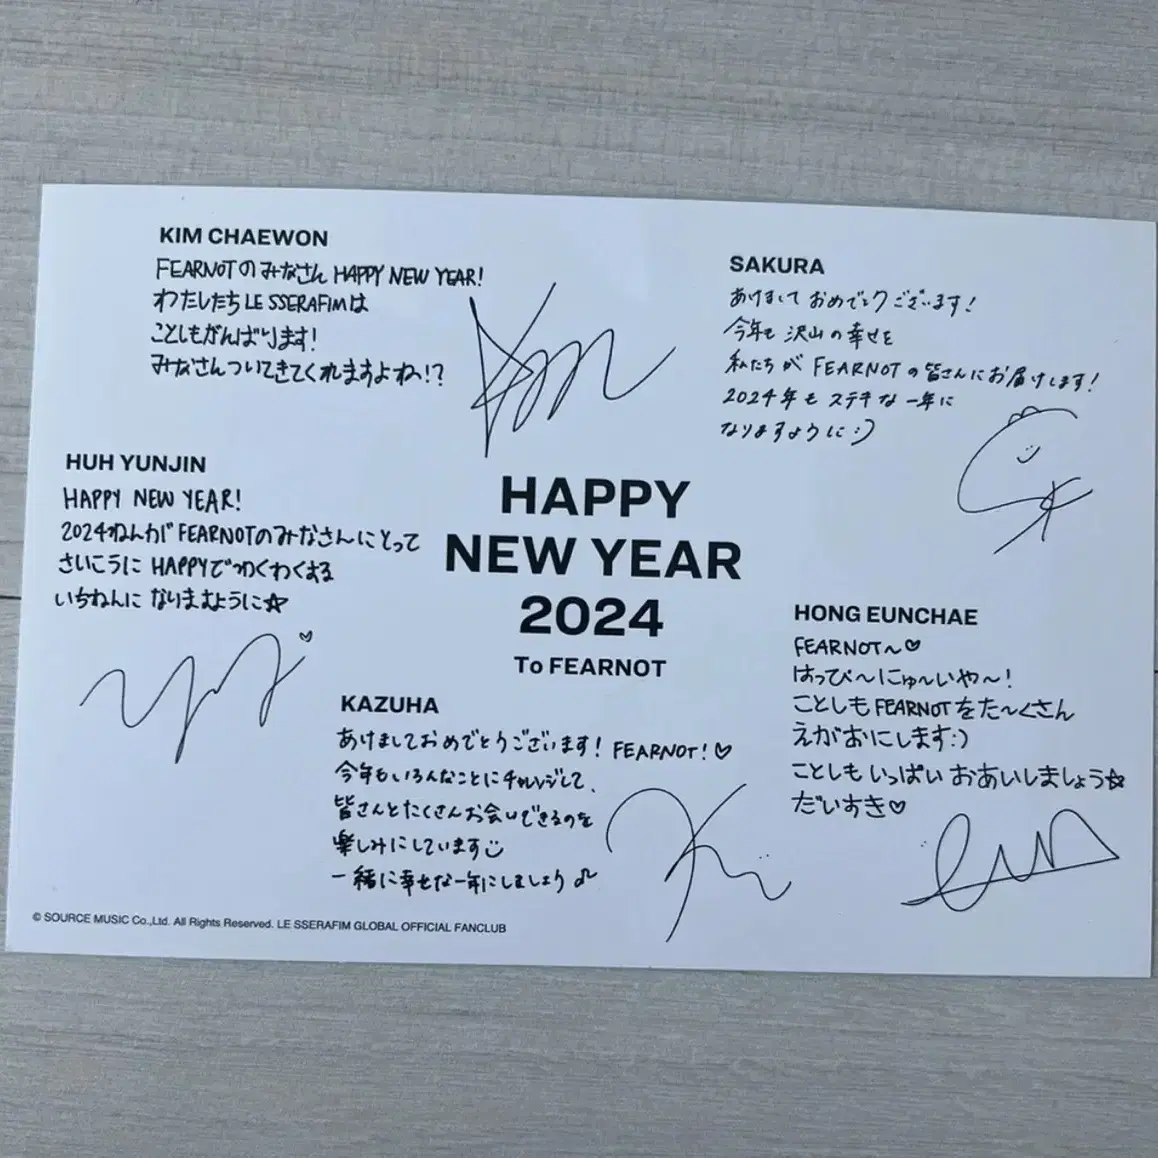 KIM CHAEWON
FEARNOTのみなさん HAPPY NEW YEAR!
わたしたち LE SSERAFIMは
ことしもがんばります!
みなさんついてきてくれますよね!?
SAKURA
あけまして おめでとうございます!
今年も 沢山の幸せを
私たちが FEARNOTの皆さんにお届けします!
2024年も ステキな一年に
なりますように:)
HUH YUNJIN
HAPPY NEW YEAR!
2024ねんが FEARNOTのみなさんにとって
さいこうに HAPPYでわくわくする
いちねんに なりますように☆
HAPPY
NEW YEAR
2024
To FEARNOT
HONG EUNCHAE
FEARNOT~♡
はっぴ~にゅ~いや~!
ことしも FEARNOTをた~くさん
えがおにします:)
ことしも いっぱい おあいしましょう☆
だいすき♡
KAZUHA
あけましておめでとうございます! FEARNOT!♡
今年もいろんなことにチャレンジして、
皆さんとたくさんお会いできるのを
楽しみにしています
一緒に幸せな一年にしましょう♪
© SOURCE MUSIC Co.,Ltd. All Rights Reserved. LE SSERAFIM GLOBAL OFFICIAL FANCLUB